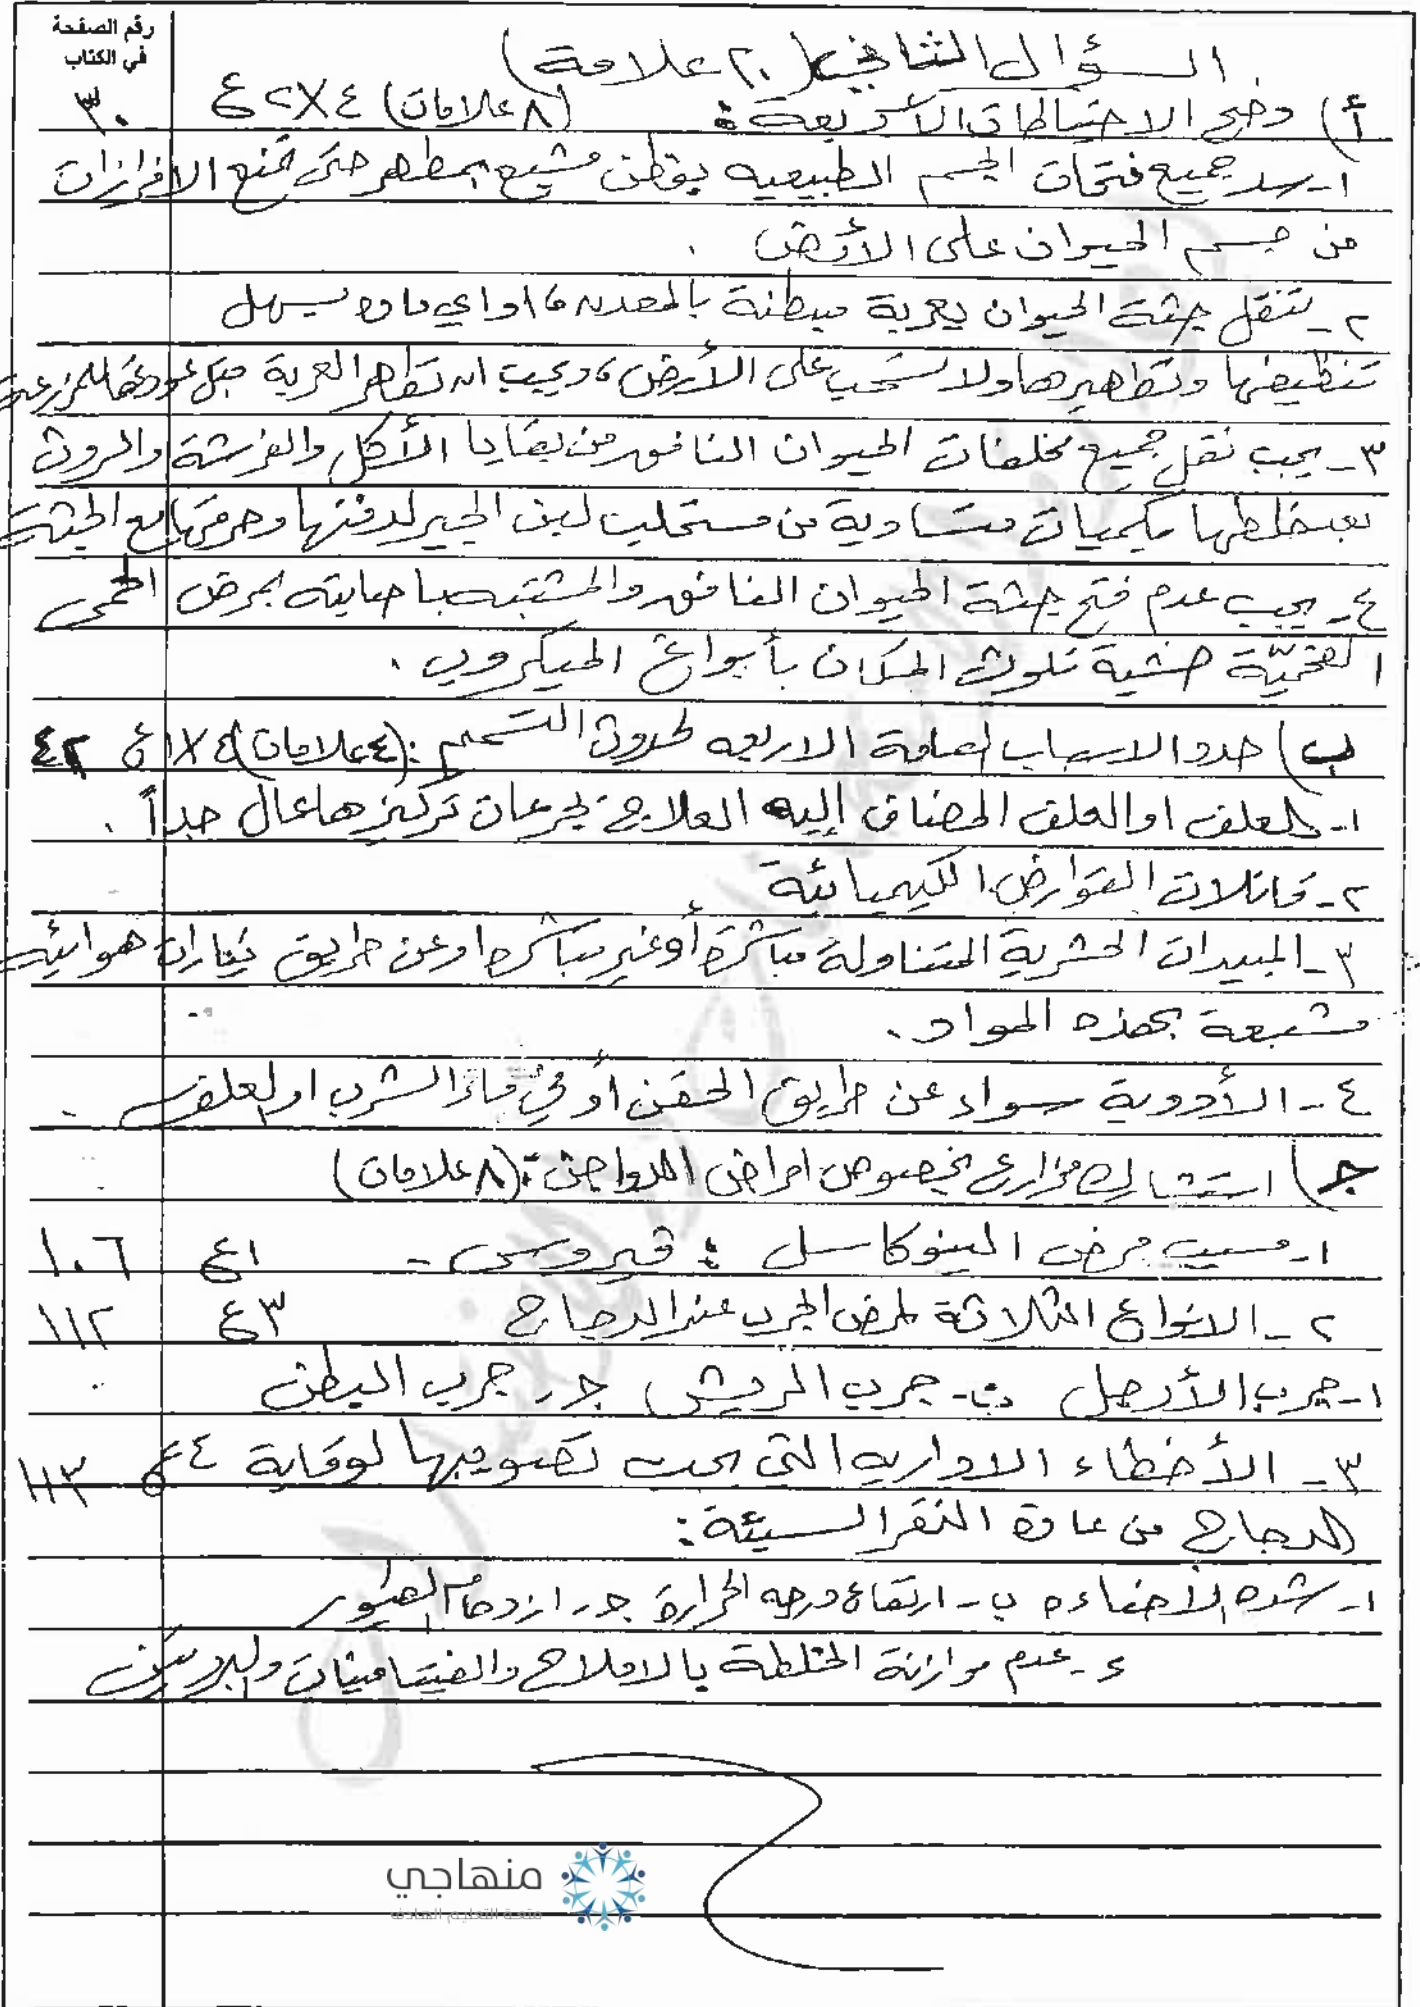 رقم الصفحة
في الكتاب
السؤال الثاني (٢٠ علامة)
أ) وضح الاحتياطات الأربعة: (٨ علامات) ٤×٢ع ٣٠
١- سد جميع فتحات الجسم الطبيعيه بقطن مشبع بمطهر حتى تمنع الافرازات
من جسم الحيوان على الأرض .
٢- تنقل جثة الحيوان بعربة مبطنة بالمعدن، او اي مادة يسهل
تنظيفها وتطهيرها ولا تسحب على الأرض، ويجب ان تطهر العربة قبل عودتها للمزرعة
٣- يجب نقل جميع مخلفات الحيوان النافق من بقايا الأكل والفرشة والروث
بعد خلطها بكميات متساوية من مستحلب لبن الجير لدفنها وحرقها مع الجثة
٤- يجب عدم فتح جثة الحيوان النافق والمشتبه باصابته بمرض الحمى
الفحميّة خشية تلوث المكان بأبواغ الميكروب .
ب) حدد الاسباب العامة الاربعه لحدوث التسمم : (٤ علامات) ٤×١ع ٤٢
١- العلف او العلف المضاف إليه العلاج بجرعات تركيزها عال جداً .
٢- قاتلات القوارض الكيميائية
٣- المبيدات الحشرية المتناولة مباشرة أو غير مباشرة او عن طريق تيارات هوائية
مشبعة بهذه المواد .
٤- الأدوية سواء عن طريق الحقن أو في ماء الشرب او العلف .
ج) استشارك مزارع بخصوص امراض الدواجن : (٨ علامات)
١- مسبب مرض النيوكاسل : فيروس - ١ع ١٠٦
٢- الانواع الثلاثة لمرض الجرب عند الدجاج ٣ع ١١٢
١- جرب الأرجل ب- جرب الريش ج- جرب البطن
٣- الأخطاء الاداريه التي يجب تصويبها لوقاية ٤ع ١١٣
الدجاج من عادة النقر السيئة :
١- شده الاضاءه ب- ارتفاع درجه الحرارة ج- ازدحام الطيور
د- عدم موازنة الخلطة بالاملاح والفيتامينات والبروتين
منهاجي
متعة التعليم الهادف